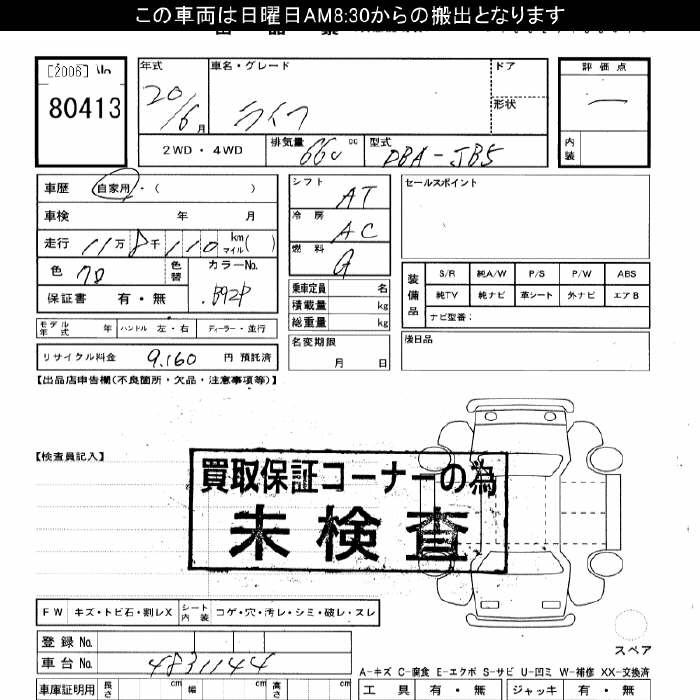 この車両は日曜日AM8:30からの搬出となります
[2006] No
80413
年式 車名・グレード ドア
20/6月 ライフ
形状
2WD・4WD 排気量 660 cc 型式 DBA-JB5
評価点
―
内装
車歴 自家用・( )
車検 年 月
走行 11万8千110 km マイル( )
色 クロ 色替 カラーNo. B92P
保証書 有・無
モデル年式 年 ハンドル 左・右 ディーラー・並行
リサイクル料金 9,160 円 預託済
シフト AT
冷房 AC
燃料 G
乗車定員 名
積載量 kg
総重量 kg
名変期限
月 日
セールスポイント
装備品
S/R 純A/W P/S P/W ABS
純TV 純ナビ 革シート 外ナビ エアB
ナビ型番:
後日品
【出品店申告欄(不良箇所・欠品・注意事項等)】
【検査員記入】
買取保証コーナーの為
未検査
FW キズ・トビ石・割レX シート内装 コゲ・穴・汚レ・シミ・破レ・スレ
登録No.
車台No. 4831144
車庫証明用 長さ cm 幅 cm 高さ cm
スペア
A-キズ C-腐食 E-エクボ S-サビ U-凹ミ W-補修 XX-交換済
工具 有・無 ジャッキ 有・無